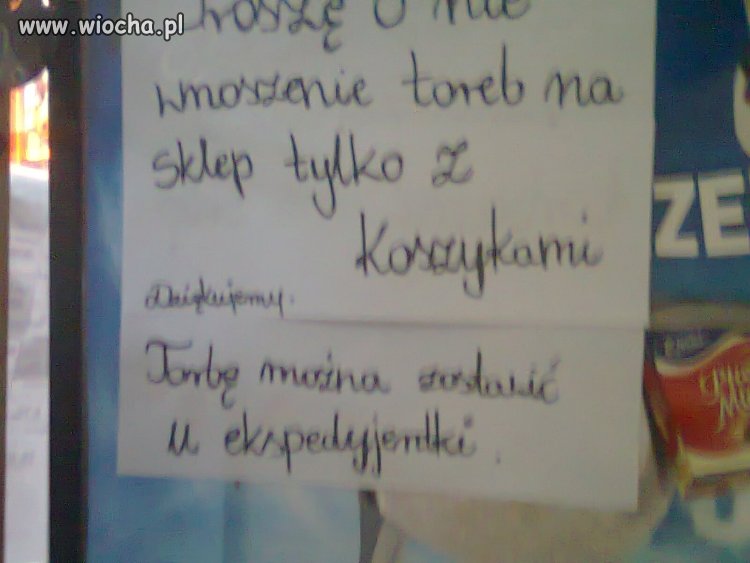 www.wiocha.pl
Proszę o nie
wnoszenie toreb na
sklep tylko z
koszykami
Dziękujemy.
Torbę można zostawić
u ekspedyjentki.
ZE